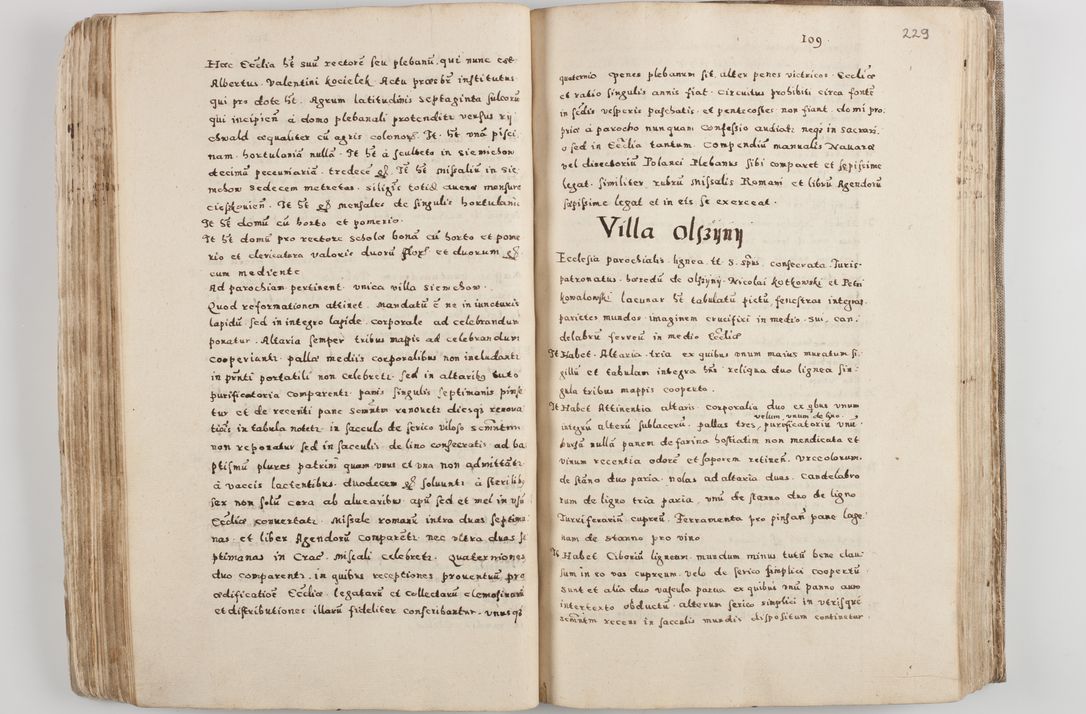 Hæc Ecclia ht suũ rectorẽ seu plebanũ, qui nunc est
Albertus Valentini Kocielek. Actu præsbr institutus
qui pro dote ht. Agrum latitudinis septaginta sulcorũ
qui incipien̄ a domo plebanali protenditr versus
chwald æqualiter cũ agris colonorũ. It. ht unã pisci
nam. hortulaniã nullã. It ht á sculteto in Siemiechow
decimã pecuniariã. tredecẽ. It ht Missaliũ in Sie
mechow sedecem metretas. siliginis totidẽ auenæ mensuræ
It ht mensales de singulis hortulanis
It ht domũ cũ horto et pomerio.
It ht domũ pro rectore scholæ bonã cũ horto et pome
rio et clericatura valoris duorũ flor et duorum
cum mediente
Ad parochiam pertinent. unica villa Siemechow.
Quod reformationem attinet. Mandatũ ẽ ne in iuncturis
lapidũ. sed in integro lapide. corporale ad celebrandum
ponatur. Altaria semper tribus mappis ad celebrandum
cooperiantr. pallæ mediis corporalibus non includantr
in portatili non celebretr. sed in altaribus tuto
purificatoria comparentr. panis singulis septimanis pinse
tur et de recenti pane renovetr diesqꝫ renova
in tabula notetr. in sacculo de serico viloso
non reponatur sed in sacculis de lino consecratis ad ba
ptismũ plures patrini quam unus et una non admittãtr
á vaccis lactentibus. duodecem soluuntr á sterilibus
sex non solũ cera ab aluearibus apũ sed et mel in usũ
Eccliæ convertatr. Missale romanũ intra duas septima
nas. et liber Agendorũ comparetr nec ultra duas se
ptimanas in Crac. Missali celebretr. Quaterniones
duo comparentr. in quibus receptiones proventuũ pro
ædificatioẽ Eccliæ. legatarũ et collectarũ elemosinarũ
et distributiones illarũ fideliter conscribantur. unus
109
229
quaternio penes plebanum sit. alter penes victricos. Eccliæ
et ratio singulis annis fiat. Circuitus prohibiti circa fontẽ
in vesperis paschatis. et pentecostes non fiant. domi pro
priæ á parocho nunquam Confessio audiatr. neqꝫ in sacrari
o sed in Ecclia tantum. Compendiũ manualis Nauaræ
vel directoriũ Polanci Plebanus sibi comparet et sepissime
legat. similiter. rubrũ Missalis Romani et librũ Agendorũ
sæpissime legat et in eis se exerceat.
Villa Olszyny
Ecclesia parochialis. lignea. tt. S. spũs. consecrata. Iuris-
patronatus. hæredũ de olszyny. Nicolai Kotkowski et Petri
Kowalowski lacunar ht tabulatũ pictũ, fenestras integras.
parietes mundos imaginem crucifixi in medio sui, can-
delabrũ ferreũ in medio Eccliæ
It Habet. Altaria tria ex quibus unum maius muratum si-
gillũ et tabulam integrã hñs reliqua duo lignea sin-
gula tribus mappis cooperta.
It Habet Attinentia altaris corporalia duo ex qbus unum
velum unum de lino.
integrũ alterũ sublacerũ. pallas tres, purificatoriũ unũ.
bursã nullã panem de farina hostiatim non mendicata et
vinum recentia odorẽ et saporem retinen̄. Urceolorum.
de stãno duo paria. nolas ad altaria duas. Candelabro
rum de ligno tria paria, unũ de stanno duo de ligno
Turriferariũ cupreũ. Ferramenta pro pane lage-
nam de stanno pro vino
It Habet Ciboriũ ligneum mundum minus tutũ bene clau-
sum in eo vas cupreum. velo de serico simplici coopertũ
sunt et alia duo vascula parua ex quibus unũ panno auro
intertexto obductũ. alterum serico simplici in utrisqꝫ
recens in sacculis mundis dispositum continetur.